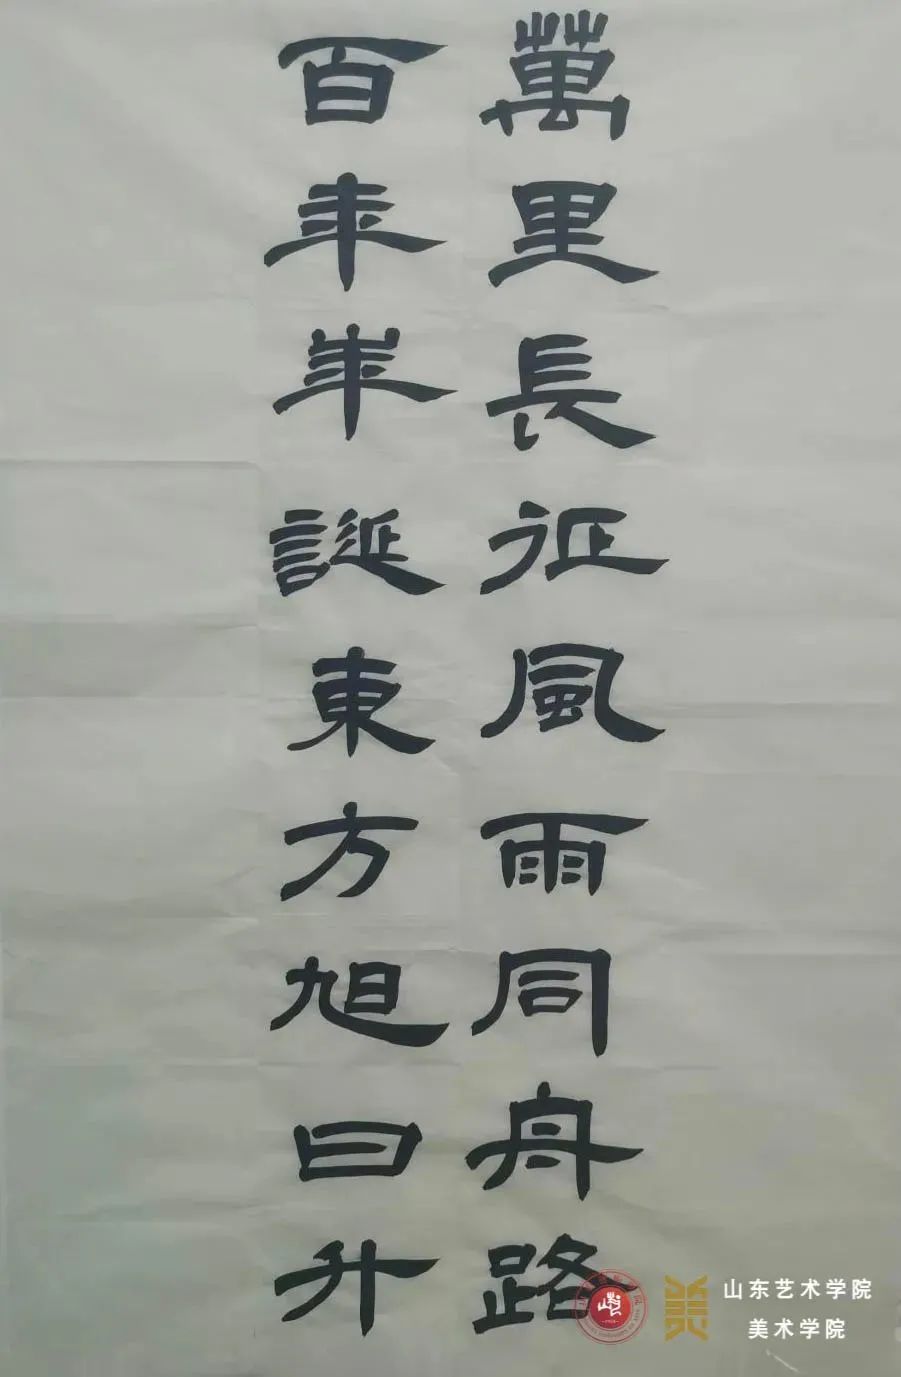 萬里長征風雨同舟路
百年華誕東方旭日升
山东艺术学院
美术学院